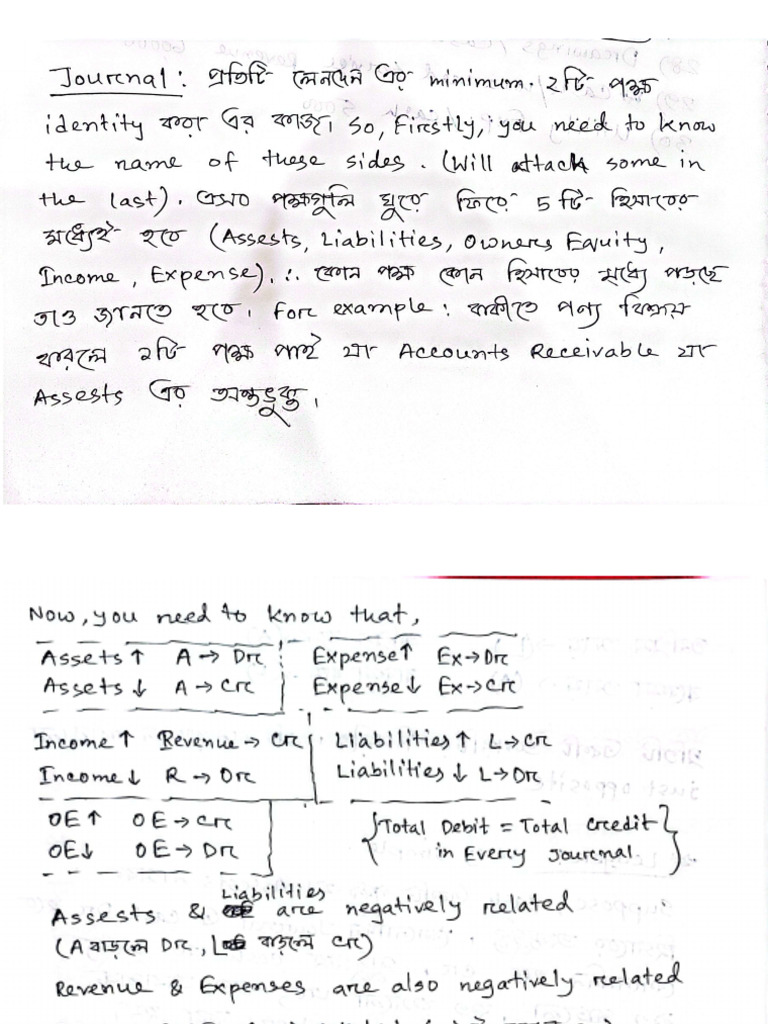 Journal: প্রতিটি লেনদেন এর minimum ২টি পক্ষ
identity করা এর কাজ। So, Firstly, you need to know
the name of these sides. (Will attach some in
the last). এসব পক্ষগুলি ঘুরে ফিরে 5 টি হিসাবের
মধ্যেই হবে (Assests, Liabilities, Owners Equity,
Income, Expense). ∴ কোন পক্ষ কোন হিসাবের মধ্যে পড়ছে
তাও জানতে হবে। For example: বাকীতে পণ্য বিক্রয়
করলে ২টি পক্ষ পাই যা Accounts Receivable যা
Assests এর অন্তর্ভুক্ত।
Now, you need to know that,
Assets ↑ A → Dr Expense ↑ Ex → Dr
Assets ↓ A → Cr Expense ↓ Ex → Cr
Income ↑ Revenue → Cr Liabilities ↑ L → Cr
Income ↓ R → Dr Liabilities ↓ L → Dr
OE ↑ OE → Cr {Total Debit = Total Credit
OE ↓ OE → Dr in Every Journal}
Assests & Liabilities are negatively related
(A বাড়লে Dr, L বাড়লে Cr)
Revenue & Expenses are also negatively related